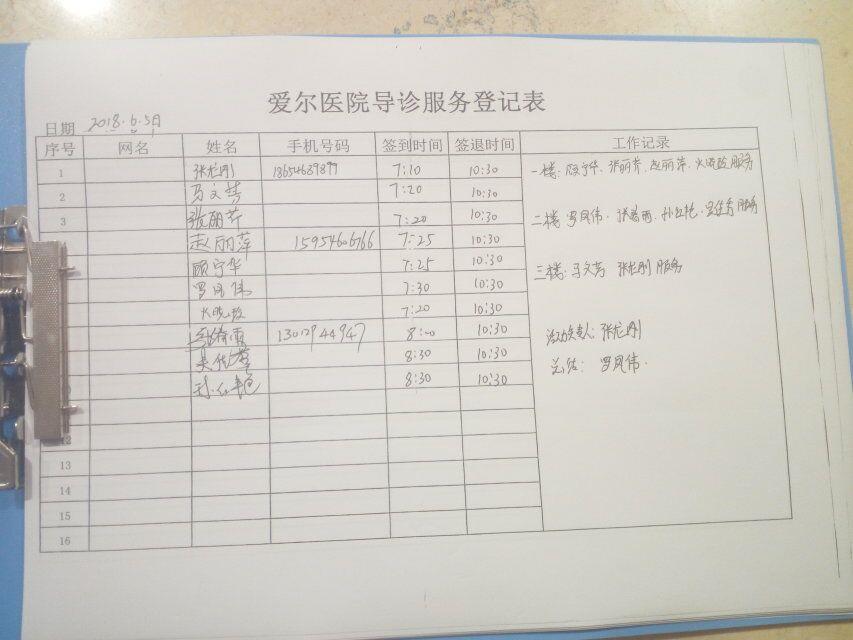 爱尔医院导诊服务登记表
日期 2018.6.5日
序号 网名 姓名 手机号码 签到时间 签退时间 工作记录
1 张龙刚 7:10 10:30
2 马文芳 7:20 10:30
3 张丽芹 7:20 10:30
赵丽萍 15954606766 7:25 10:30
顾宁华 7:25 10:30
罗凤伟 7:30 10:30
7:20 10:30
13012944947 8:00 10:30
8:30 10:30
8:30 10:30
12
13
14
15
16
一楼: 顾宁华、张丽芹、赵丽萍、服务
二楼 罗凤伟、服务
三楼: 马文芳 张龙刚 服务
活动负责人: 张龙刚
总结: 罗凤伟.